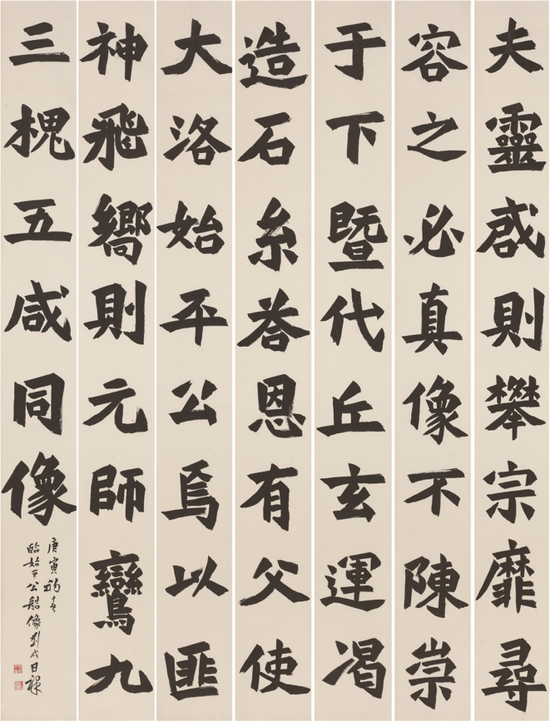 夫靈咸則攀宗靡尋
容之必真像不陳崇
于下暨代丘玄運渴
造石糸答恩有父使
大洛始平公焉以匪
神飛嚮則元師鸞九
三槐五咸同像
庚寅初春
臨始平公造像